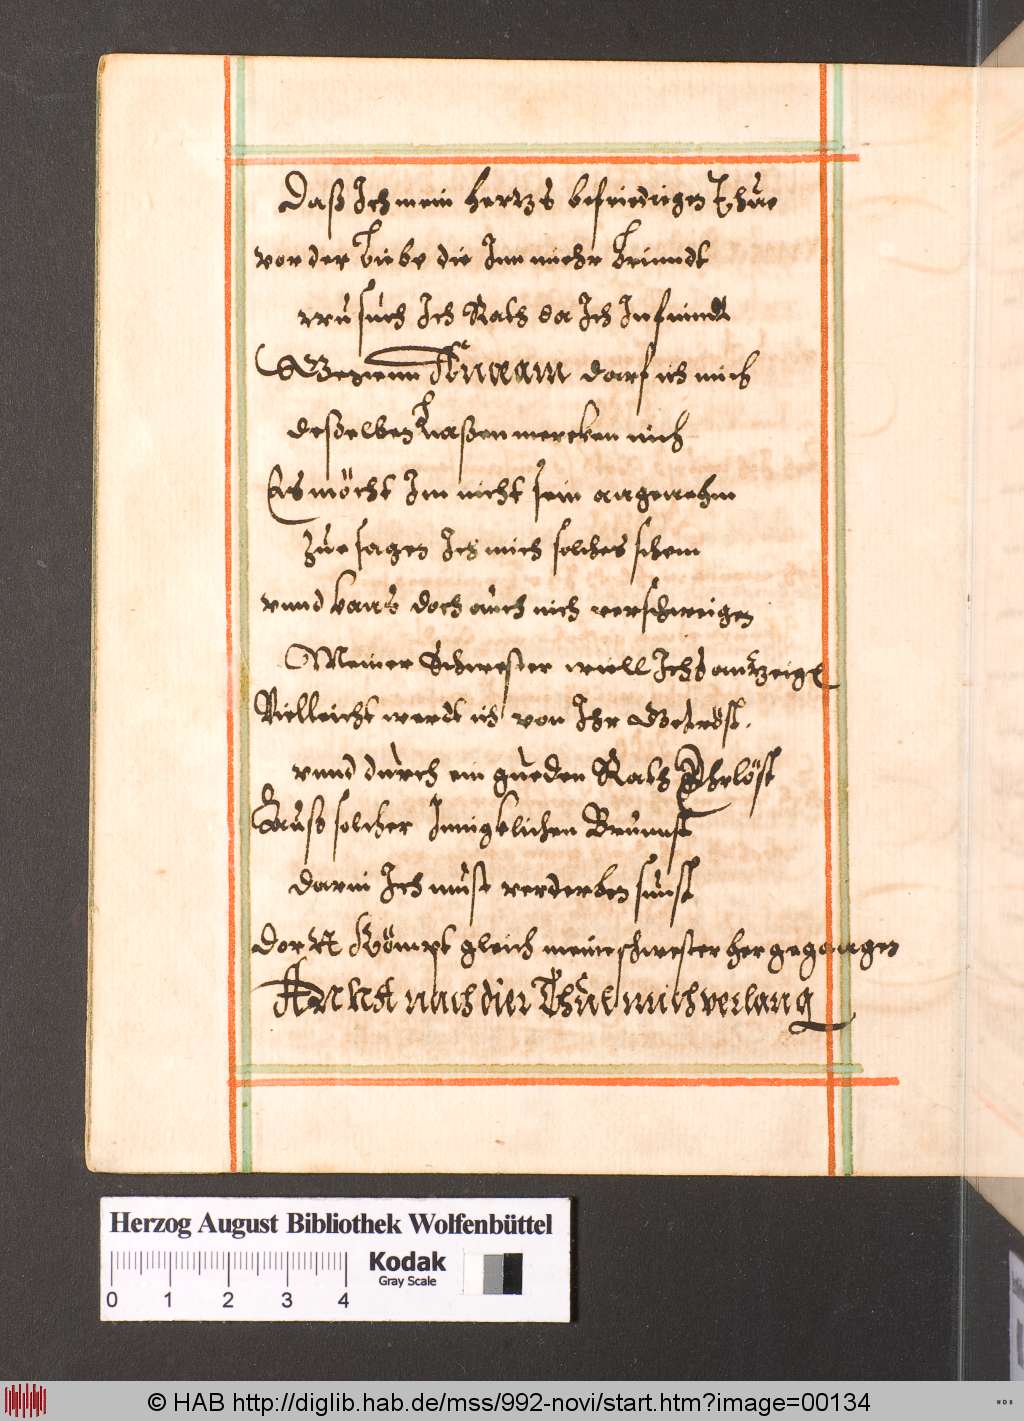 Daß Ich mein hertzs befriedigen thue
vor der Liebe die Inn miehr brinndt
nu such Ich Rath da Ich In findt
Aeneam darf ich mich
deßelben laßen mercken nich
Es möcht Im nicht sein angenehm
Zue sagen Ich mich solches schem
vnnd kans doch auch nich verschweigen
Meiner Schwester will Ichs antzeigen
Vielleicht werdt ich von Ihr Getröst.
vnnd durch ein gueden Rath Ehrlöst
auß solcher Innigklichen Brunnst
darin Ich must verderben sunst
dorrt Kömpt gleich meine schwester her gegangen
ANNA nach dier thuet mich verlang
Herzog August Bibliothek Wolfenbüttel
Kodak
Gray Scale
0 1 2 3 4
© HAB http://diglib.hab.de/mss/992-novi/start.htm?image=00134